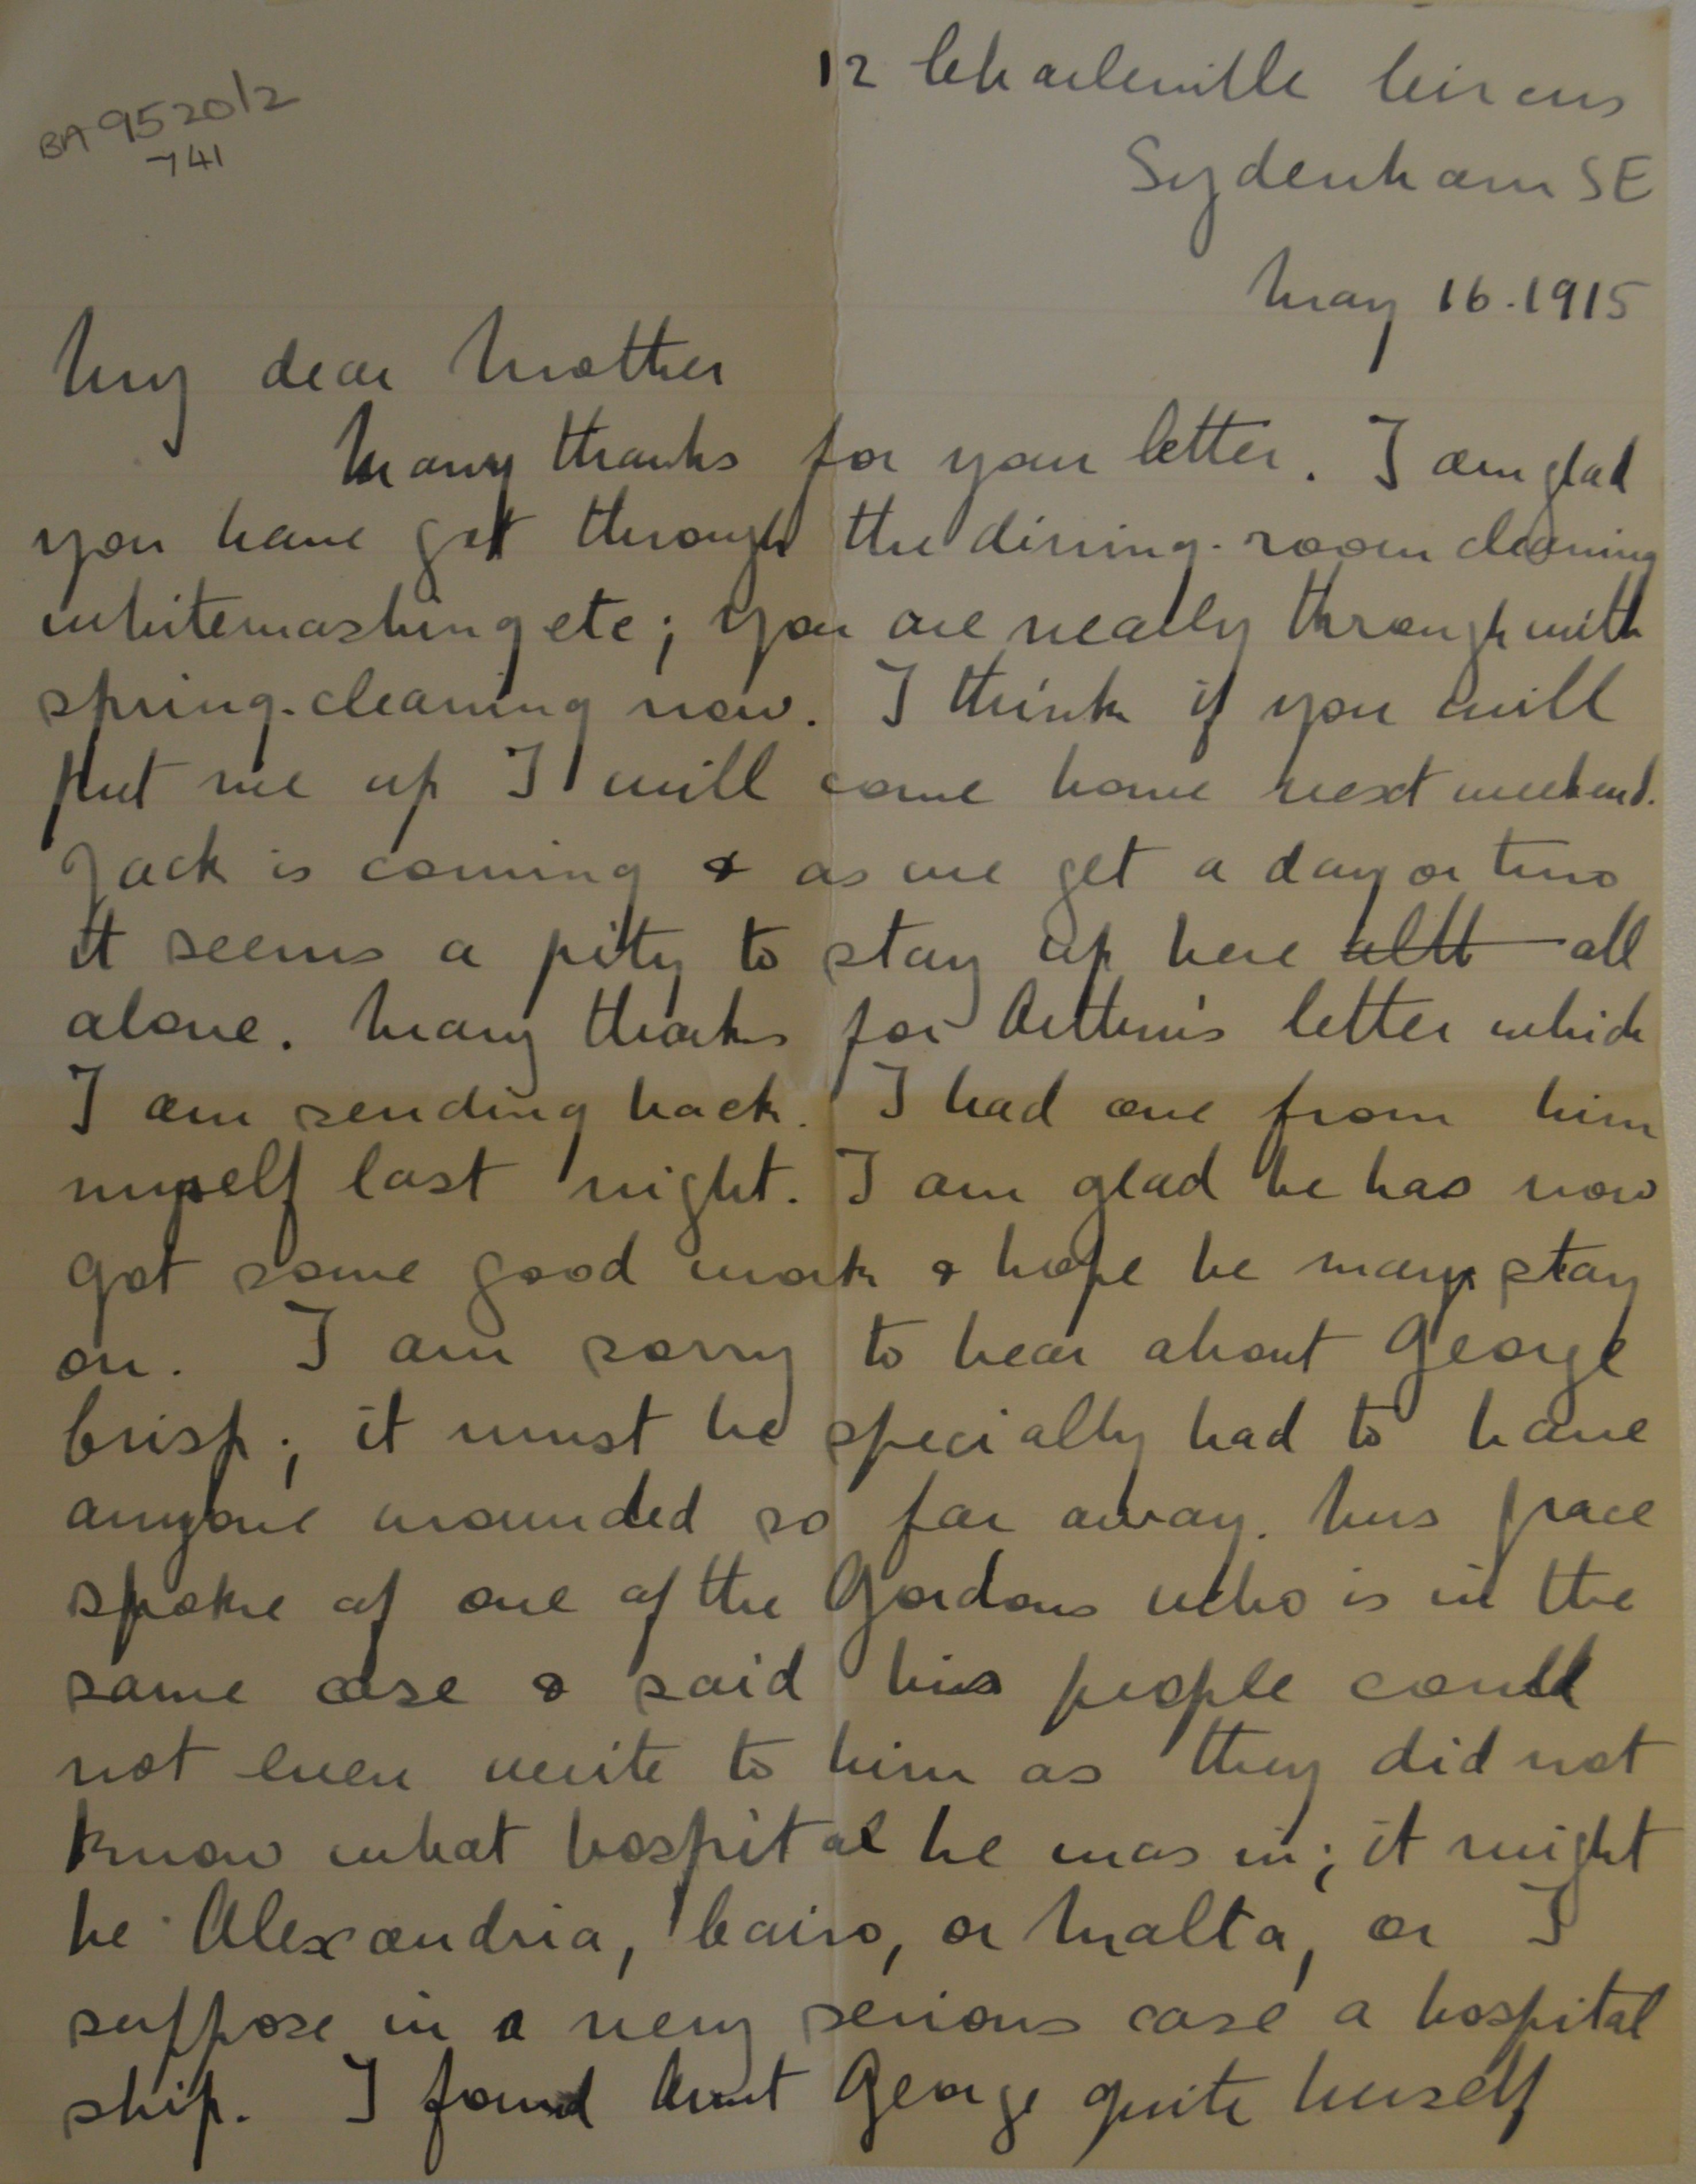 BA 9520/2
741
12 Charleville Circus
Sydenham SE
May 16. 1915
My dear Mother
Many thanks for your letter. I am glad
you have got through the dining-room cleaning
whitewashing etc; you are nearly through with
spring-cleaning now. I think if you will
put me up I will come home next weekend.
Jack is coming & as we get a day or two
it seems a pity to stay up here altt all
alone. Many thanks for Arthur's letter which
I am sending back. I had one from him
myself last night. I am glad he has now
got some good work & hope he may stay
on. I am sorry to hear about George
Crisp; it must be specially bad to have
anyone wounded so far away. Mrs Grace
spoke of one of the Gordons who is in the
same case & said his people could
not even write to him as they did not
know what hospital he was in; it might
be Alexandria, Cairo, or Malta, or I
suppose in a very serious case a hospital
ship. I found Aunt George quite herself